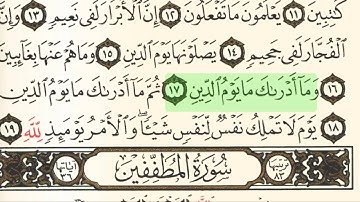 كَٰتِبِينَ ١١ يَعۡلَمُونَ مَا تَفۡعَلُونَ ١٢ إِنَّ ٱلۡأَبۡرَارَ لَفِي نَعِيمٖ ١٣ وَإِنَّ
ٱلۡفُجَّارَ لَفِي جَحِيمٖ ١٤ يَصۡلَوۡنَهَا يَوۡمَ ٱلدِّينِ ١٥ وَمَا هُمۡ عَنۡهَا بِغَآئِبِينَ
١٦ وَمَآ أَدۡرَىٰكَ مَا يَوۡمُ ٱلدِّينِ ١٧ ثُمَّ مَآ أَدۡرَىٰكَ مَا يَوۡمُ ٱلدِّينِ
١٨ يَوۡمَ لَا تَمۡلِكُ نَفۡسٞ لِّنَفۡسٖ شَيۡـٔٗاۖ وَٱلۡأَمۡرُ يَوۡمَئِذٖ لِّلَّهِ ١٩
ترتيبها ٨٣ سُورَةُ ٱلْمُطَفِّفِينَ آياتها ٣٦